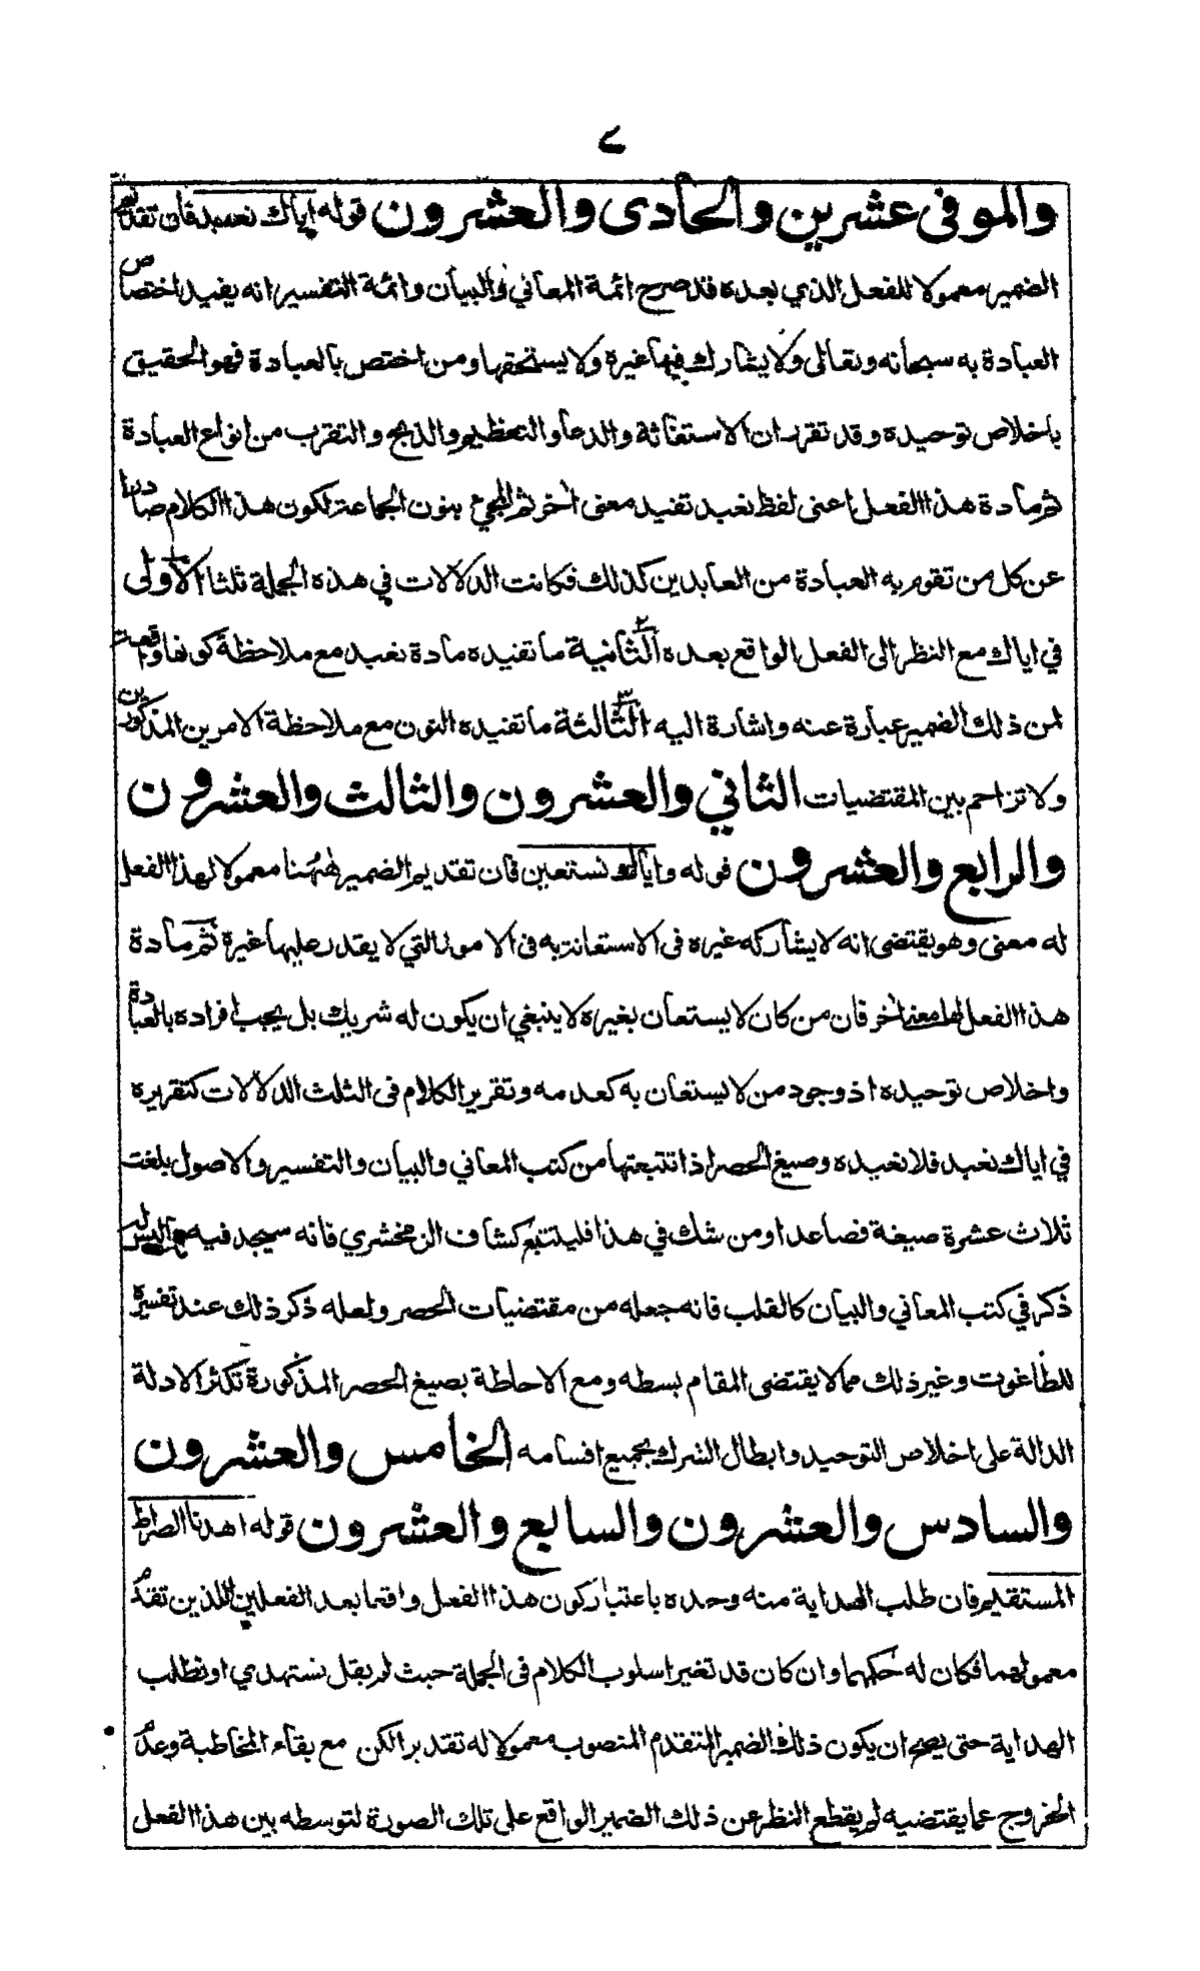 ٧
والموفى عشرين والحادى والعشرون قوله اياك نعبد فان تقديم
الضمير معمولا للفعل الذي بعده قد صرح ائمة المعاني والبيان وائمة التفسير انه يفيد اختصاص
العبادة به سبحانه وتعالى ولا يشاركه فيها غيرة ولا يستحقها ومن اختص بالعبادة فهو الحقيق
باخلاص توحيده وقد تقرر ان الاستغاثة والدعا والتعظيم والذبح والتقرب من انواع العبادة
ثم مادة هذا الفعل اعنى لفظ نعبد تفيد معنى اخر ثم المجئ بنون الجماعة لكون هذا الكلام صادرا
عن كل من تقوم به العبادة من العابدين كذلك فكانت الدلالات في هذه الجملة ثلثا الاولى
في اياك مع النظر الى الفعل الواقع بعده الثانية ما تفيده مادة نعبد مع ملاحظة كونها واقعت
لمن ذلك الضمير عبارة عنه واشارة اليه الثالثة ما تفيده النون مع ملاحظة الامرين المذكورين
ولا تزاحم بين المقتضيات الثاني والعشرون والثالث والعشرون
والرابع والعشرون قوله واياك نستعين فان تقديم الضمير ههنا معمولا لهذا الفعل
له معنى وهو يقتضى انه لا يشاركه غيره فى الاستعانة به فى الامور التي لا يقدر عليها غيرة ثم مادة
هذا الفعل لها معنى اخر فان من كان لا يستعان بغيرة لا ينبغي ان يكون له شريك بل يجب افراده بالعبادة
واخلاص توحيده اذ وجود من لا يستعان به كعدمه وتقرير الكلام فى الثلث الدلالات كتقريره
في اياك نعبد فلا نعيده وصيغ الحصر اذا تتبعتها من كتب المعاني والبيان والتفسير والاصول بلغت
ثلاث عشرة صيغة فصاعدا ومن شك في هذا فليتتبع كشاف الزمخشري فانه سيجد فيه ما ليس له
ذكر في كتب المعاني والبيان كالقلب فانه جعله من مقتضيات الحصر ولعله ذكر ذلك عند تفسيره
للطاغوت وغير ذلك مما لا يقتضى المقام بسطه ومع الاحاطة بصيغ الحصر المذكورة تكثر الادلة
الدالة على اخلاص التوحيد وابطال الشرك بجميع اقسامه الخامس والعشرون
والسادس والعشرون والسابع والعشرون قوله اهدنا الصراط
المستقيم فان طلب الهداية منه وحده باعتبار كون هذا الفعل واقعا بعد الفعلين اللذين تقدم
معمولهما فكان له حكمهما وان كان قد تغير اسلوب الكلام فى الجملة حيث لم يقل نستهدي او نطلب
الهداية حتى يصح ان يكون ذلك الضمير المتقدم المنصوب معمولا له تقديرا لكن مع بقاء المخاطبة وعدم
الخروج عما يقتضيه لم يقطع النظر عن ذلك الضمير الواقع على تلك الصورة لتوسطه بين هذا الفعل